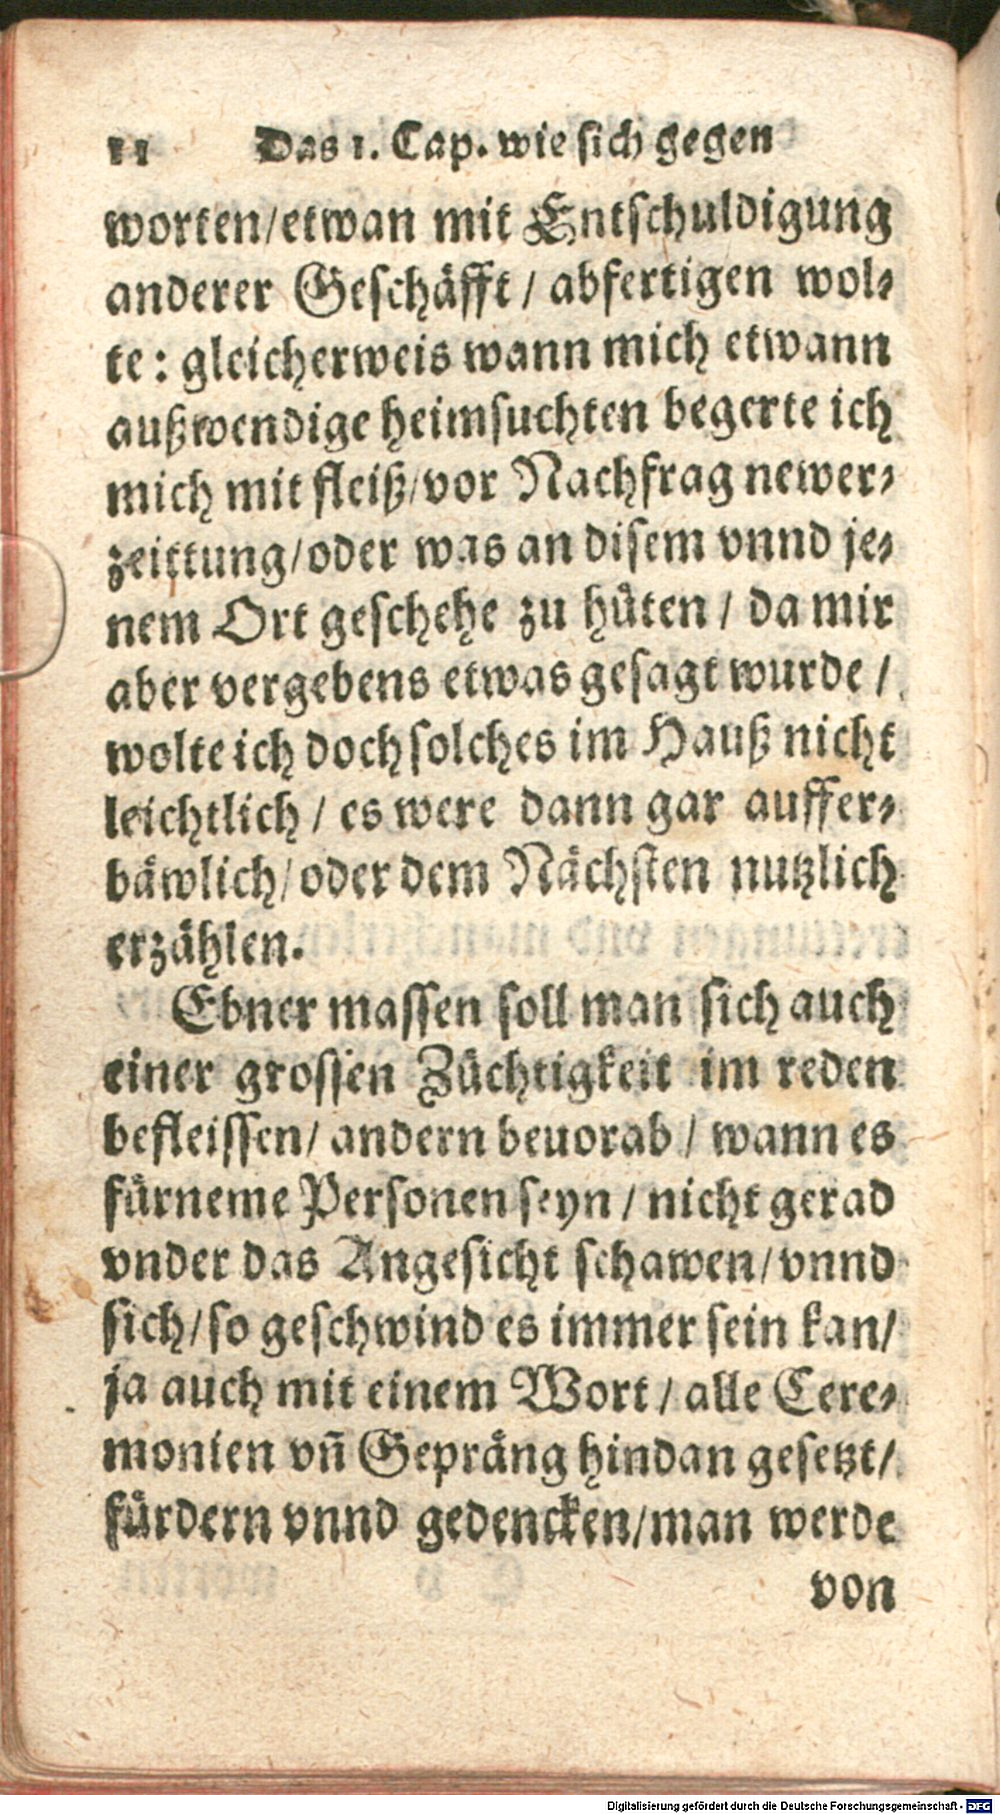 11 Das 1. Cap. wie sich gegen
worten/etwan mit Entschuldigung
anderer Geschäfft / abfertigen wol⸗
te: gleicherweis wann mich etwann
außwendige heimsuchten begerte ich
mich mit fleiß/vor Nachfrag newer⸗
zeittung/oder was an disem vnnd je⸗
nem Ort geschehe zu hüten / da mir
aber vergebens etwas gesagt wurde /
wolte ich doch solches im Hauß nicht
leichtlich / es were dann gar auffer⸗
bäwlich/oder dem Nächsten nutzlich
erzählen.
Ebner massen soll man sich auch
einer grossen Züchtigkeit im reden
befleissen/ andern beuorab / wann es
fürneme Personen seyn / nicht gerad
vnder das Angesicht schawen/vnnd
sich/so geschwind es immer sein kan/
ja auch mit einem Wort / alle Cere⸗
monien vn̄ Gepräng hindan gesetzt/
fürdern vnnd gedencken/man werde
von
Digitalisierung gefördert durch die Deutsche Forschungsgemeinschaft - DFG